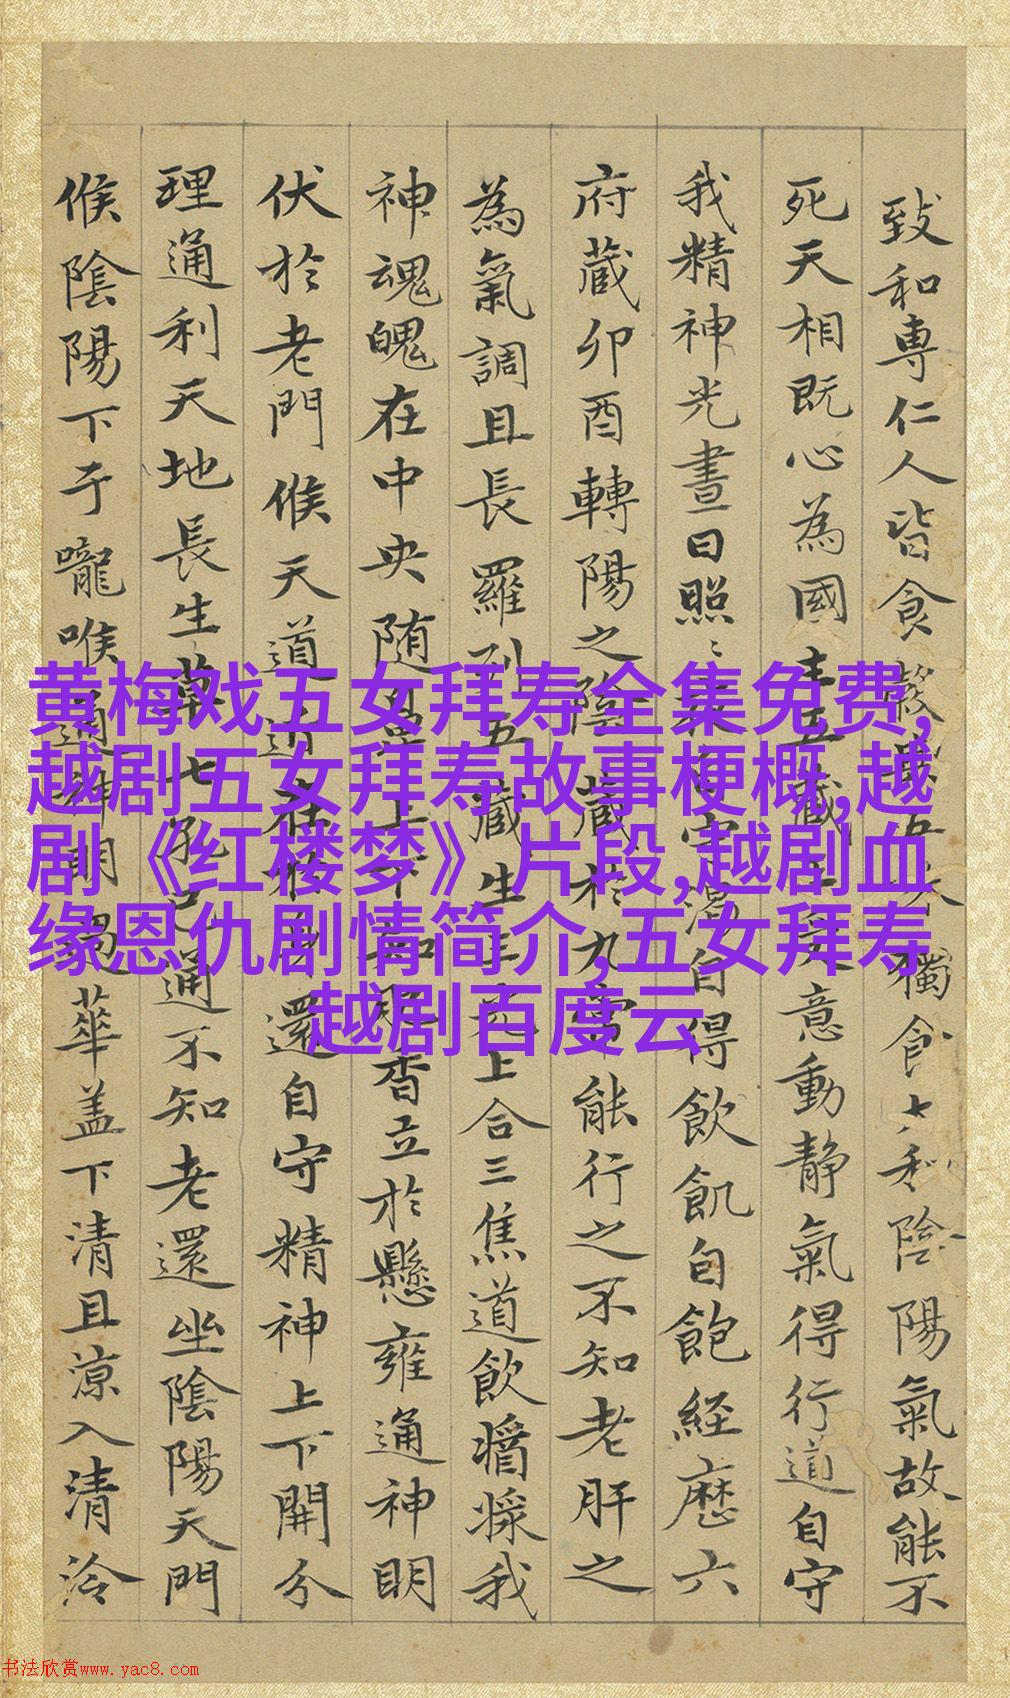 致和専仁人皆食五獨食和陰陽氣故能不
死天相既心為國主五藏意動静氣得行道自守
我精神光晝日照〻自守渴自得飲飢自飽経歷六
府藏卯酉轉陽之陰藏於九常能行之不知老肝之
為氣調且長羅列五藏生三上合三焦道飲醬漿我
神魂魄在中央随上下知香立於懸雍通神明
伏於老門候天道近在於還自守精神上下開分
理通利天地長生草七孔已通不知老還坐陰陽天門
候陰陽下于嚨喉通神明過華盖下清且涼入清泠
黄梅戏五女拜寿全集免费,
越剧五女拜寿故事梗概,越
剧《红楼梦》片段,越剧血
缘恩仇剧情简介,五女拜寿
越剧百度云
书法欣赏www.yac8.com